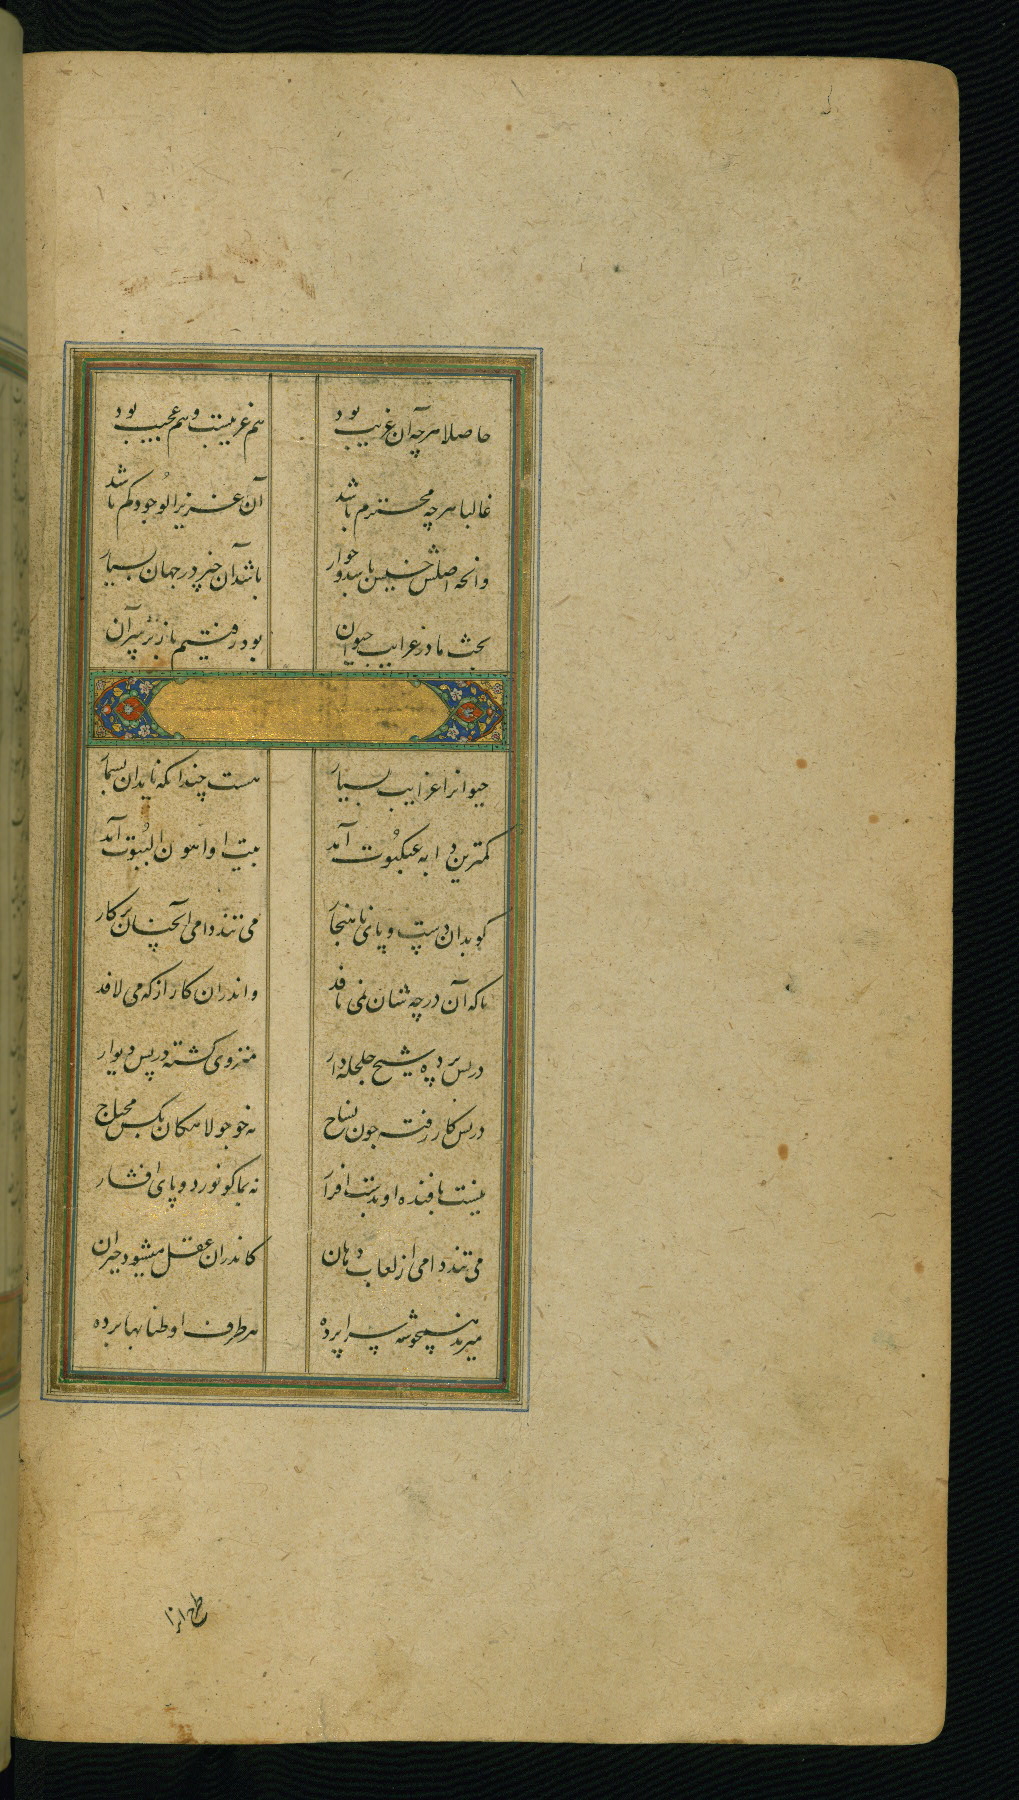 حاصلا هرچه آن غریب بود
هم غریبست و هم عجیب بود
غالبا هرچه محترم باشد
آن عزیز الوجود و کم باشد
وانچه اصلش خسیس باشد و خوار
باشد آن چیز در جهان بسیار
بحث ما در غرایب حیوان
بود رفتیم باز بر سر آن
حیوانرا غرایب بسیار
هست چندانکه ناید آن بشمار
کمترین دابه عنکبوت آمد
بیت او اهون البیوت آمد
کو بدان دست و پای ناهنجار
می تند دامی آنچنان پرکار
تا که آن در چه شان می بافد
واندران کار از که می لافد
در پس پرده شیخ جلجله دار
منزوی گشته در پس دیوار
در پس کار رفته چون نساج
نه خو جولاهکان بکس محتاج
نیست بافنده او بدست افزار
نه بماکو نورد و پای افشار
می تند دامی از لعاب دهان
کاندران عقل میشود حیران
میزند همچو شه سراپرده
هر طرف او طنابها برده